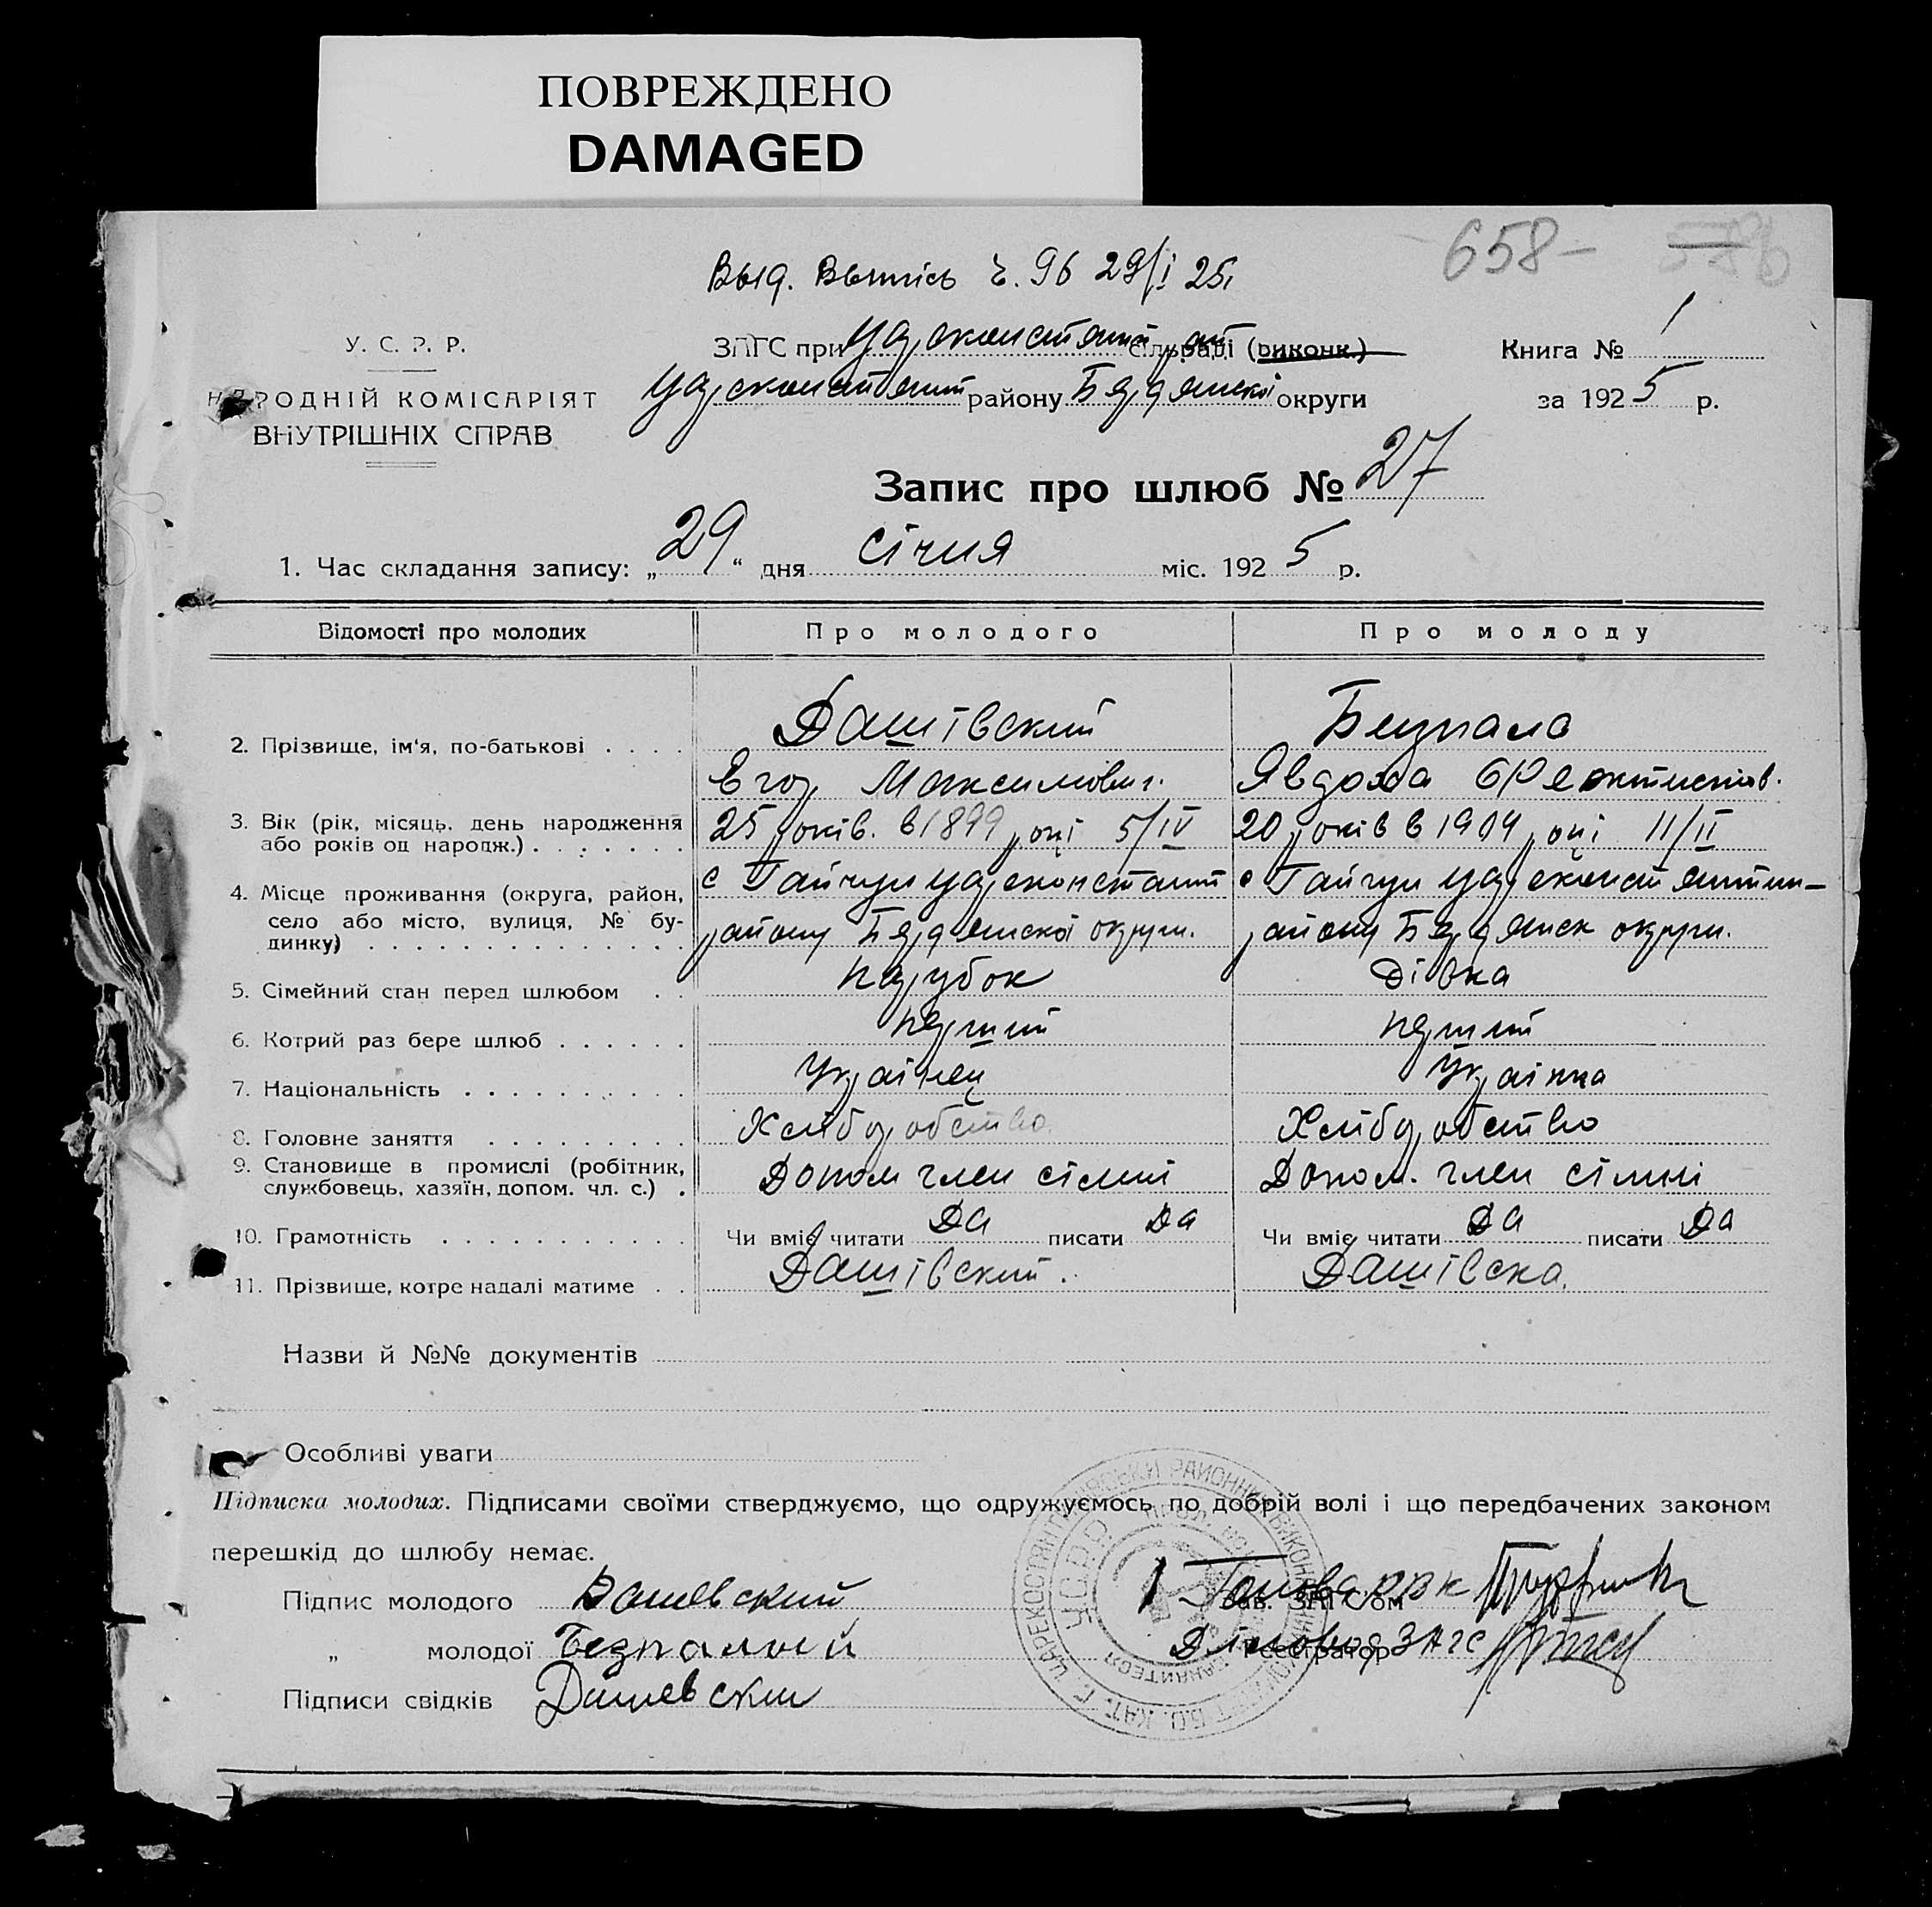 ПОВРЕЖДЕНО
DAMAGED
658-
Выд. Выпись ч. 96 29/I 25
У. С. Р. Р.
НАРОДНІЙ КОМІСАРІЯТ
ВНУТРІШНІХ СПРАВ
ЗАГС при Царсконстант сільраді (виконк.)
Царсконстант району Бердянскоі округи
Книга № 1
за 1925 р.
Запис про шлюб № 27
1. Час складання запису: „29“ дня січня міс. 1925 р.
Відомості про молодих Про молодого Про молоду
2. Прізвище, ім'я, по-батькові . . . . Дашівский
Егор Максимович.
Явдоха
3. Вік (рік, місяць, день народження
або років од народж.) . . . . . . . 25 років. в 1899 році 5/IV 20 років в 1904 році 11/II
4. Місце проживання (округа, район,
село або місто, вулиця, № бу-
динку) . . . . . . . . . . . . . .
с Гайчул Царсконстант
району Бердянскоі округи.
с Гайчул Царсконстантин-
району Бердянск округи.
5. Сімейний стан перед шлюбом . . Парубок Дівка
6. Котрий раз бере шлюб . . . . . . перший перший
7. Національність . . . . . . . . . . Українец Українка
8. Головне заняття . . . . . . . . . Хліборобство Хліборобство
9. Становище в промислі (робітник,
службовець, хазяїн, допом. чл. с.) . Допом член сімиі Допом. член сімиі
10. Грамотність . . . . . . . . . . . Чи вміє читати Да писати Да Чи вміє читати Да писати Да
11. Прізвище, котре надалі матиме . . Дашівский. Дашівска.
Назви й №№ документів
Особливі уваги
Підписка молодих. Підписами своїми стверджуємо, що одружуємось по добрій волі і що передбачених законом
перешкід до шлюбу немає.
Підпис молодого Дашевский
Зав. ЗАГС'ом
„ молодої Безпалый
Реєстратор
Діловод ЗАГС
Підписи свідків Дашевский
У.С.Р.Р.